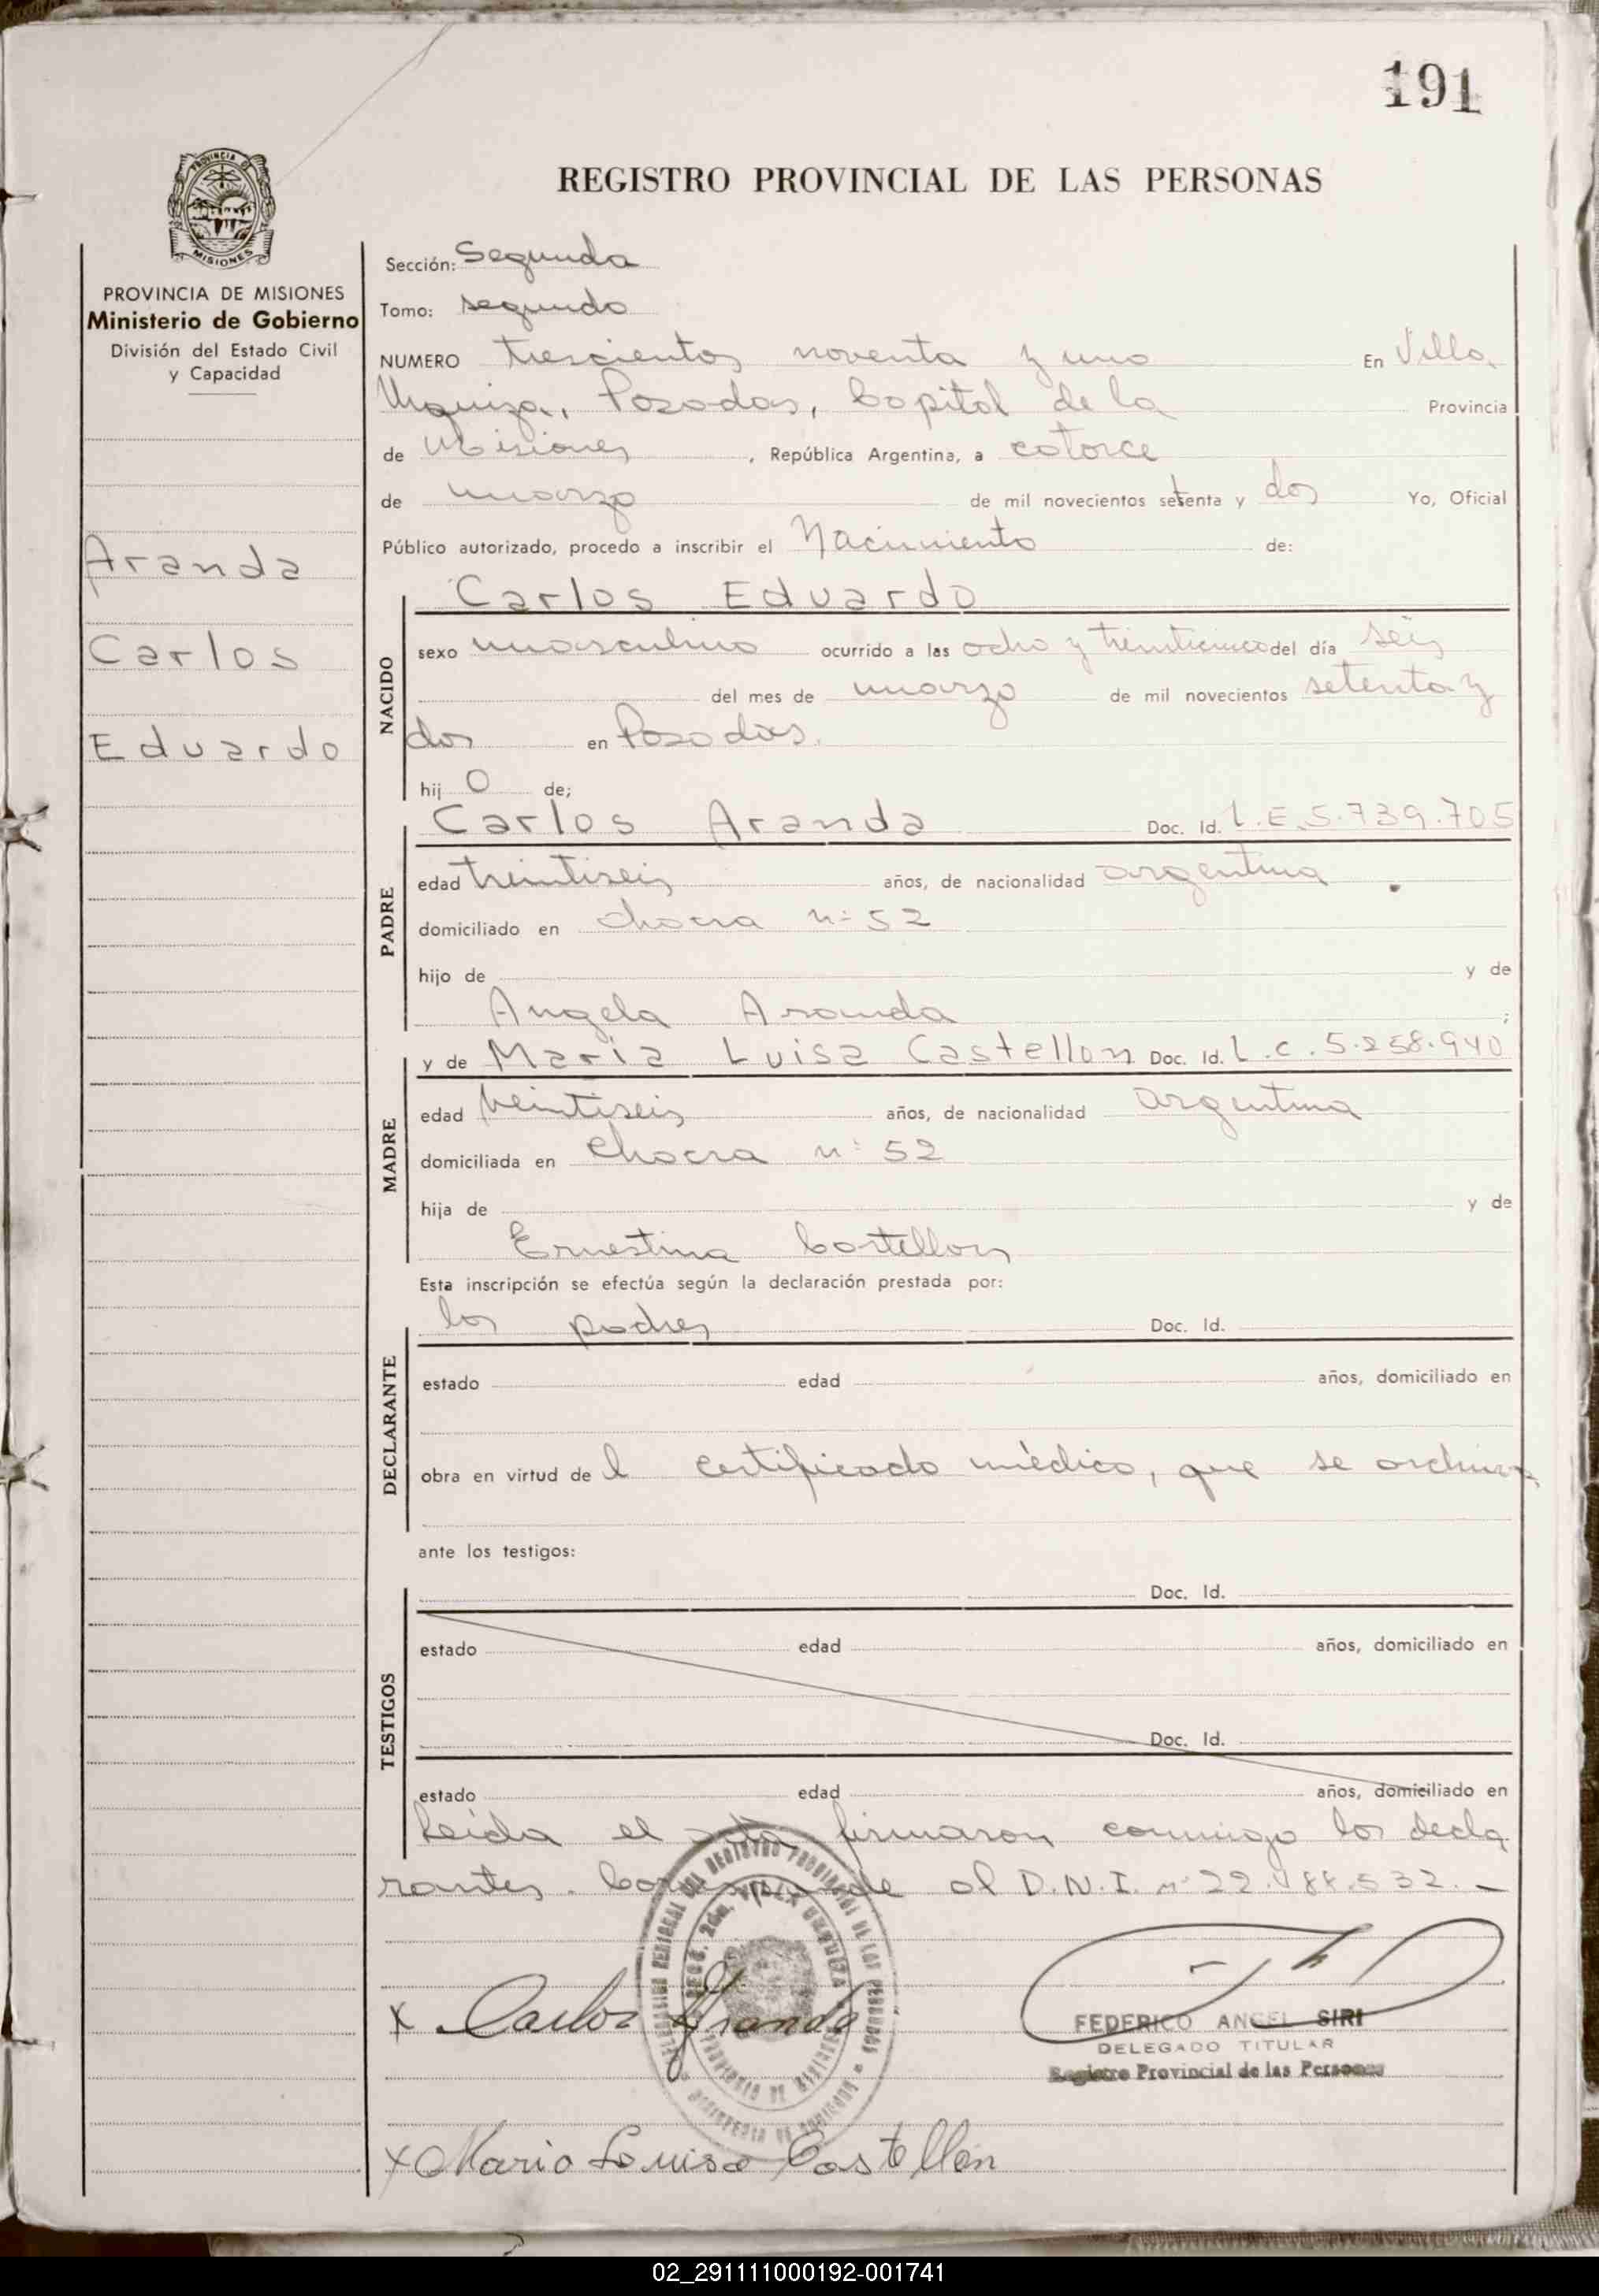 191
REGISTRO PROVINCIAL DE LAS PERSONAS
PROVINCIA DE MISIONES
Ministerio de Gobierno
División del Estado Civil
y Capacidad
Aranda
Carlos
Eduardo
Sección: Segunda
Tomo: segundo
NUMERO trescientos noventa y uno En Villa
Urquiza, Posadas, Capital de la Provincia
de Misiones, República Argentina, a catorce
de marzo de mil novecientos setenta y dos Yo, Oficial
Público autorizado, procedo a inscribir el Nacimiento de:
Carlos Eduardo
NACIDO
sexo masculino ocurrido a las ocho y treinticinco del día seis
del mes de marzo de mil novecientos setenta y
dos en Posadas.
hij o de;
Carlos Aranda Doc. Id. L.E.5.739.705
PADRE
edad treintiseis años, de nacionalidad argentina
domiciliado en chacra nº 52
hijo de y de
Angela Aranda ;
y de Maria Luisa Castellon Doc. Id. L.C.5.258.940
MADRE
edad veintiseis años, de nacionalidad argentina
domiciliada en chacra nº 52
hija de y de
Ernestina Castellon
Esta inscripción se efectúa según la declaración prestada por:
los padres Doc. Id.
DECLARANTE
estado edad años, domiciliado en
obra en virtud de l certificado médico, que se archiva
ante los testigos:
Doc. Id.
TESTIGOS
estado edad años, domiciliado en
Doc. Id.
estado edad años, domiciliado en
Leida el acta firmaron conmigo los decla
rantes. Corresponde al D.N.I. nº 22.188.532.-
x Carlos Aranda
FEDERICO ANGEL SIRI
DELEGADO TITULAR
Registro Provincial de las Personas
x Maria Luisa Castellón
02_291111000192-001741